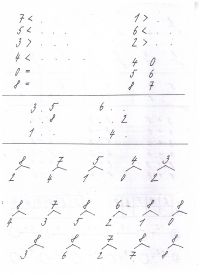 7 < .          1 > .
5 < . . .      6 < . . .
3 > . . .      2 > . .
4 < . . . .    4 0
0 =            5 6
8 =            8 7
3 . 5     6 . .
. . 8     . . 2
1 . .     . 4 .
8 7 5 4 3
2 4 1 0 2
8 7 8 6 8 8
4 3 5 2 1 0
8 8 7 8 8
3 6 2 7